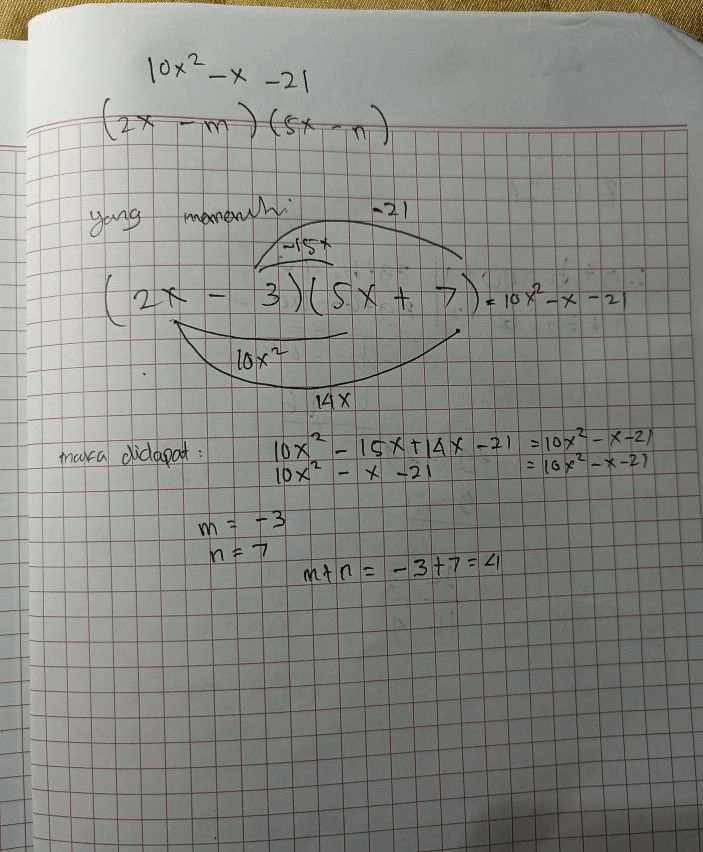 10x² - x - 21
(2x - m)(5x - n)
yang memenuhi:
-21
-15x
(2x - 3)(5x + 7) = 10x² - x - 21
10x²
14x
maka didapat: 10x² - 15x + 14x - 21 = 10x² - x - 21
10x² - x - 21 = 10x² - x - 21
m = -3
n = 7
m + n = -3 + 7 = 4